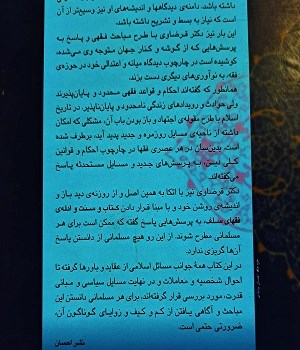 داشته باشد. دامنه‌ی دیدگاهها و اندیشه‌های او نیز وسیع‌تر از آن
است که نیاز به بسط و تشریح داشته باشد.
این بار نیز دکتر قرضاوی با طرح مباحث فقهی و پاسخ به
پرسش‌هایی که از گوشه و کنار جهان متوجه وی می‌شده،
کوشیده است در چارچوب دیدگاه میانه و اعتدالی خود در حوزه‌ی
فقه، به نوآوری‌های دیگری دست بزند.
همانطور که گفته‌اند احکام و قواعد فقهی محدود و پایان‌پذیرند
ولی حوادث و رویدادهای زندگی نامحدود و پایان‌ناپذیر. در تاریخ
اسلام با طرح مقوله‌ی اجتهاد و باز بودن باب آن، مشکلی که امکان
داشته از ناحیه‌ی مسایل روزمره و جدید پدید آید، برطرف شده
است. بدین‌سان در هر عصری فقها در چارچوب احکام و قوانین
کلی دینی، به پرسش‌های جدید و مسایل مستحدثه پاسخ
می‌گفته‌اند.
دکتر قرضاوی نیز با اتکا به همین اصل و از روزنه‌ی دید باز و
اندیشه‌ی روشن خود و با مبنا قرار دادن کتاب و سنت و ادله‌ی
فقهای سلف، به پرسش‌هایی پاسخ گفته که ممکن است برای هر
مسلمانی مطرح شوند. از این رو هیچ مسلمانی از دانستن پاسخ
آن‌ها گریزی ندارد.
در این کتاب همه جوانب مسائل اسلامی از عقاید و باورها گرفته تا
احوال شخصیه و معاملات و در نهایت مسایل سیاسی و مبانی
قدرت، مورد بررسی قرار گرفته‌اند. برای هر مسلمانی دانستن این
مباحث و آگاهی یافتن از کم و کیف و زوایای گوناگون آن،
ضرورتی حتمی است.
نشر احسان